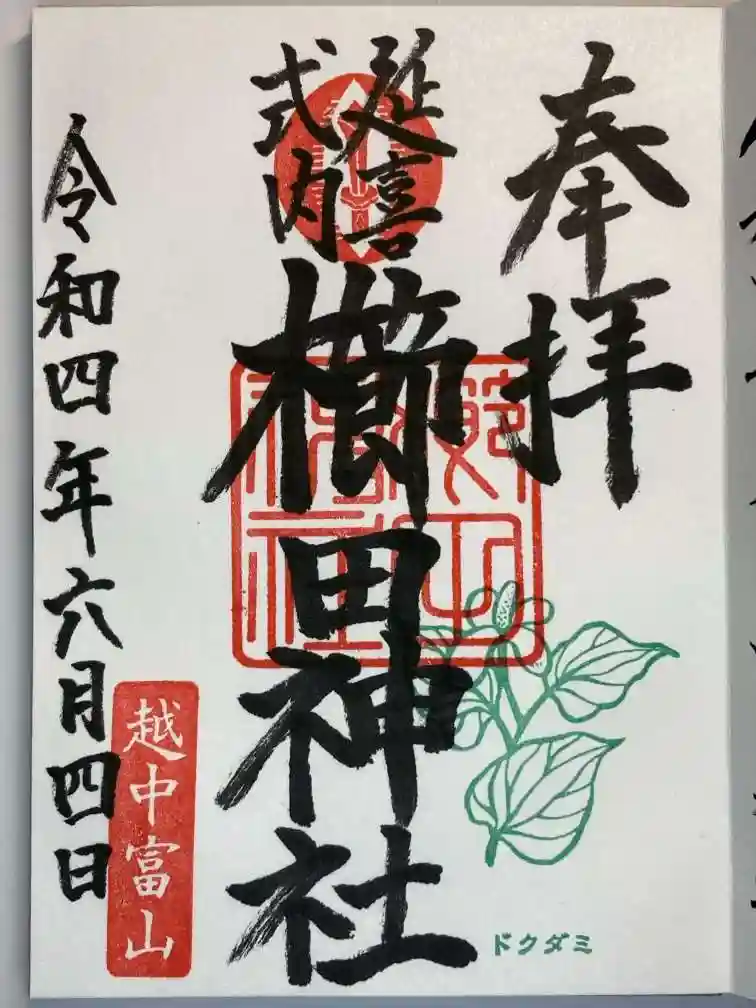 奉拝
延喜
式内
櫛田神社
櫛田神社
令和四年六月四日
越中富山
ドクダミ